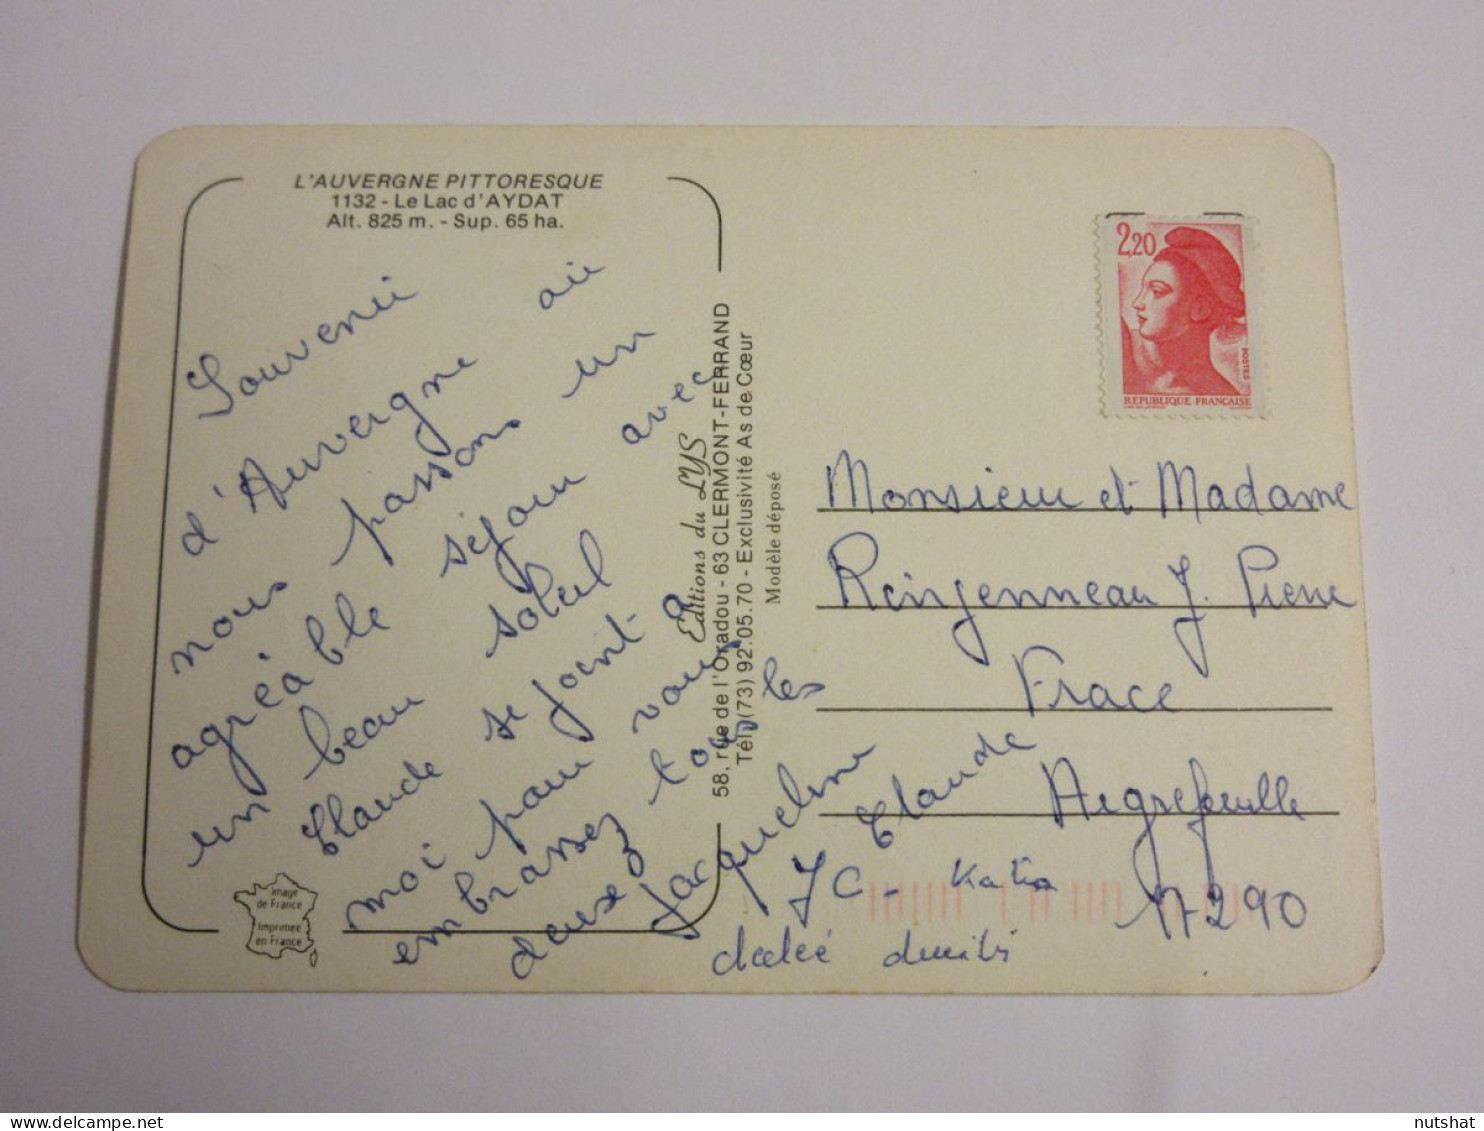 L'AUVERGNE PITTORESQUE
1132 - Le Lac d'AYDAT
Alt. 825 m. - Sup. 65 ha.
Souvenir
d'Auvergne où
nous passons un
agréable séjour avec
un beau soleil
Claude se joint à
moi pour vous
embrassez tous les
deux
Jacqueline
JC - Claude
Katia
Image
de France
Imprimée
en France
Editions du LYS
58, rue de l'Oradou - 63 CLERMONT-FERRAND
Tél. (73) 92.05.70 - Exclusivité As de Cœur
Modèle déposé
2,20
POSTES
REPUBLIQUE FRANÇAISE
Monsieur et Madame
J. Pierre
Frace
Aigrefeuille
17290
nutshat
delcampe.net